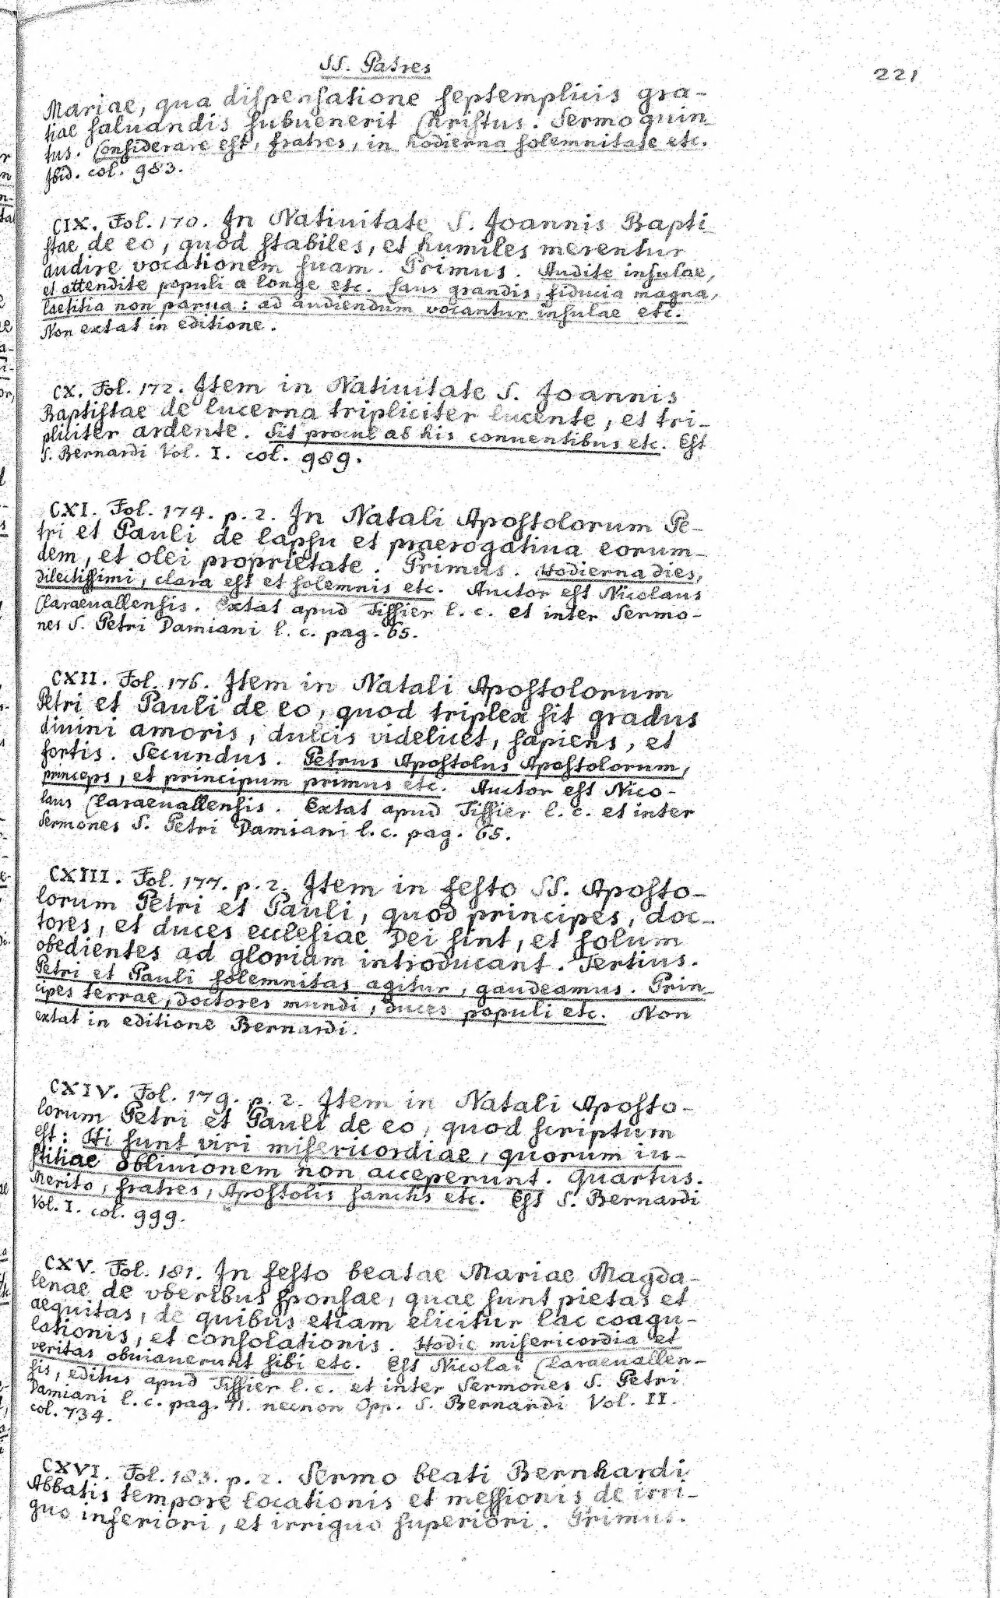 SS. Patres
221
Mariae, qua dispensatione septemplicis gra-
tiae saluandis subuenerit Christus. Sermo quin
tus. Considerare est, fratres, in hodierna solemnitate etc.
Ibid. col. 983.
CIX. Fol. 170. In Natiuitate S. Joannis Bapti
stae de eo, quod stabiles, et humiles merentur
audire vocationem suam. Primus. Audite insulae,
et attendite populi a longe etc. Laus grandis, fiducia magna,
laetitia non parua: ad audiendum vocantur insulae etc.
Non extat in editione.
CX. Fol. 172. Item in Natiuitate S. Joannis
Baptistae de lucerna tripliciter lucente, et tri-
pliciter ardente. Sit procul ab his conuentibus etc. Est
S. Bernardi Vol. I. col. 989.
CXI. Fol. 174. p. 2. In Natali Apostolorum Pe-
tri et Pauli de lapsu et praerogatiua eorum-
dem, et olei proprietate. Primus. Hodierna dies,
dilectissimi, clara est et solemnis etc. Auctor est Nicolaus
Claraeuallensis. Extat apud Tissier l. c. et inter Sermo-
nes S. Petri Damiani l. c. pag. 65.
CXII. Fol. 176. Item in Natali Apostolorum
Petri et Pauli de eo, quod triplex sit gradus
diuini amoris, dulcis videlicet, sapiens, et
fortis. Secundus. Petrus Apostolus Apostolorum,
princeps, et principum primus etc. Auctor est Nico-
laus Claraeuallensis. Extat apud Tissier l. c. et inter
Sermones S. Petri Damiani l. c. pag. 65.
CXIII. Fol. 177. p. 2. Item in festo SS. Aposto-
lorum Petri et Pauli, quod principes, doc-
tores, et duces ecclesiae Dei sint, et solum
obedientes ad gloriam introducant. Tertius.
Petri et Pauli solemnitas agitur, gaudeamus. Prin-
cipes terrae, doctores mundi, duces populi etc. Non
extat in editione Bernardi.
CXIV. Fol. 179. p. 2. Item in Natali Aposto-
lorum Petri et Pauli de eo, quod scriptum
est: Hi sunt viri misericordiae, quorum iu-
stitiae obliuionem non acceperunt. Quartus.
Merito, fratres, Apostolis sanctis etc. Est S. Bernardi
Vol. I. col. 999.
CXV. Fol. 181. In festo beatae Mariae Magda-
lenae de vberibus sponsae, quae sunt pietas et
aequitas, de quibus etiam elicitur lac coagu-
lationis, et consolationis. Hodie misericordia et
veritas obuiauerunt sibi etc. Est Nicolai Claraeuallen-
sis, editus apud Tissier l. c. et inter Sermones S. Petri
Damiani l. c. pag. 71. necnon Opp. S. Bernardi Vol. II.
col. 734.
CXVI. Fol. 183. p. 2. Sermo beati Bernhardi
Abbatis tempore locationis et messionis de irri-
guo inferiori, et irriguo superiori. Primus.